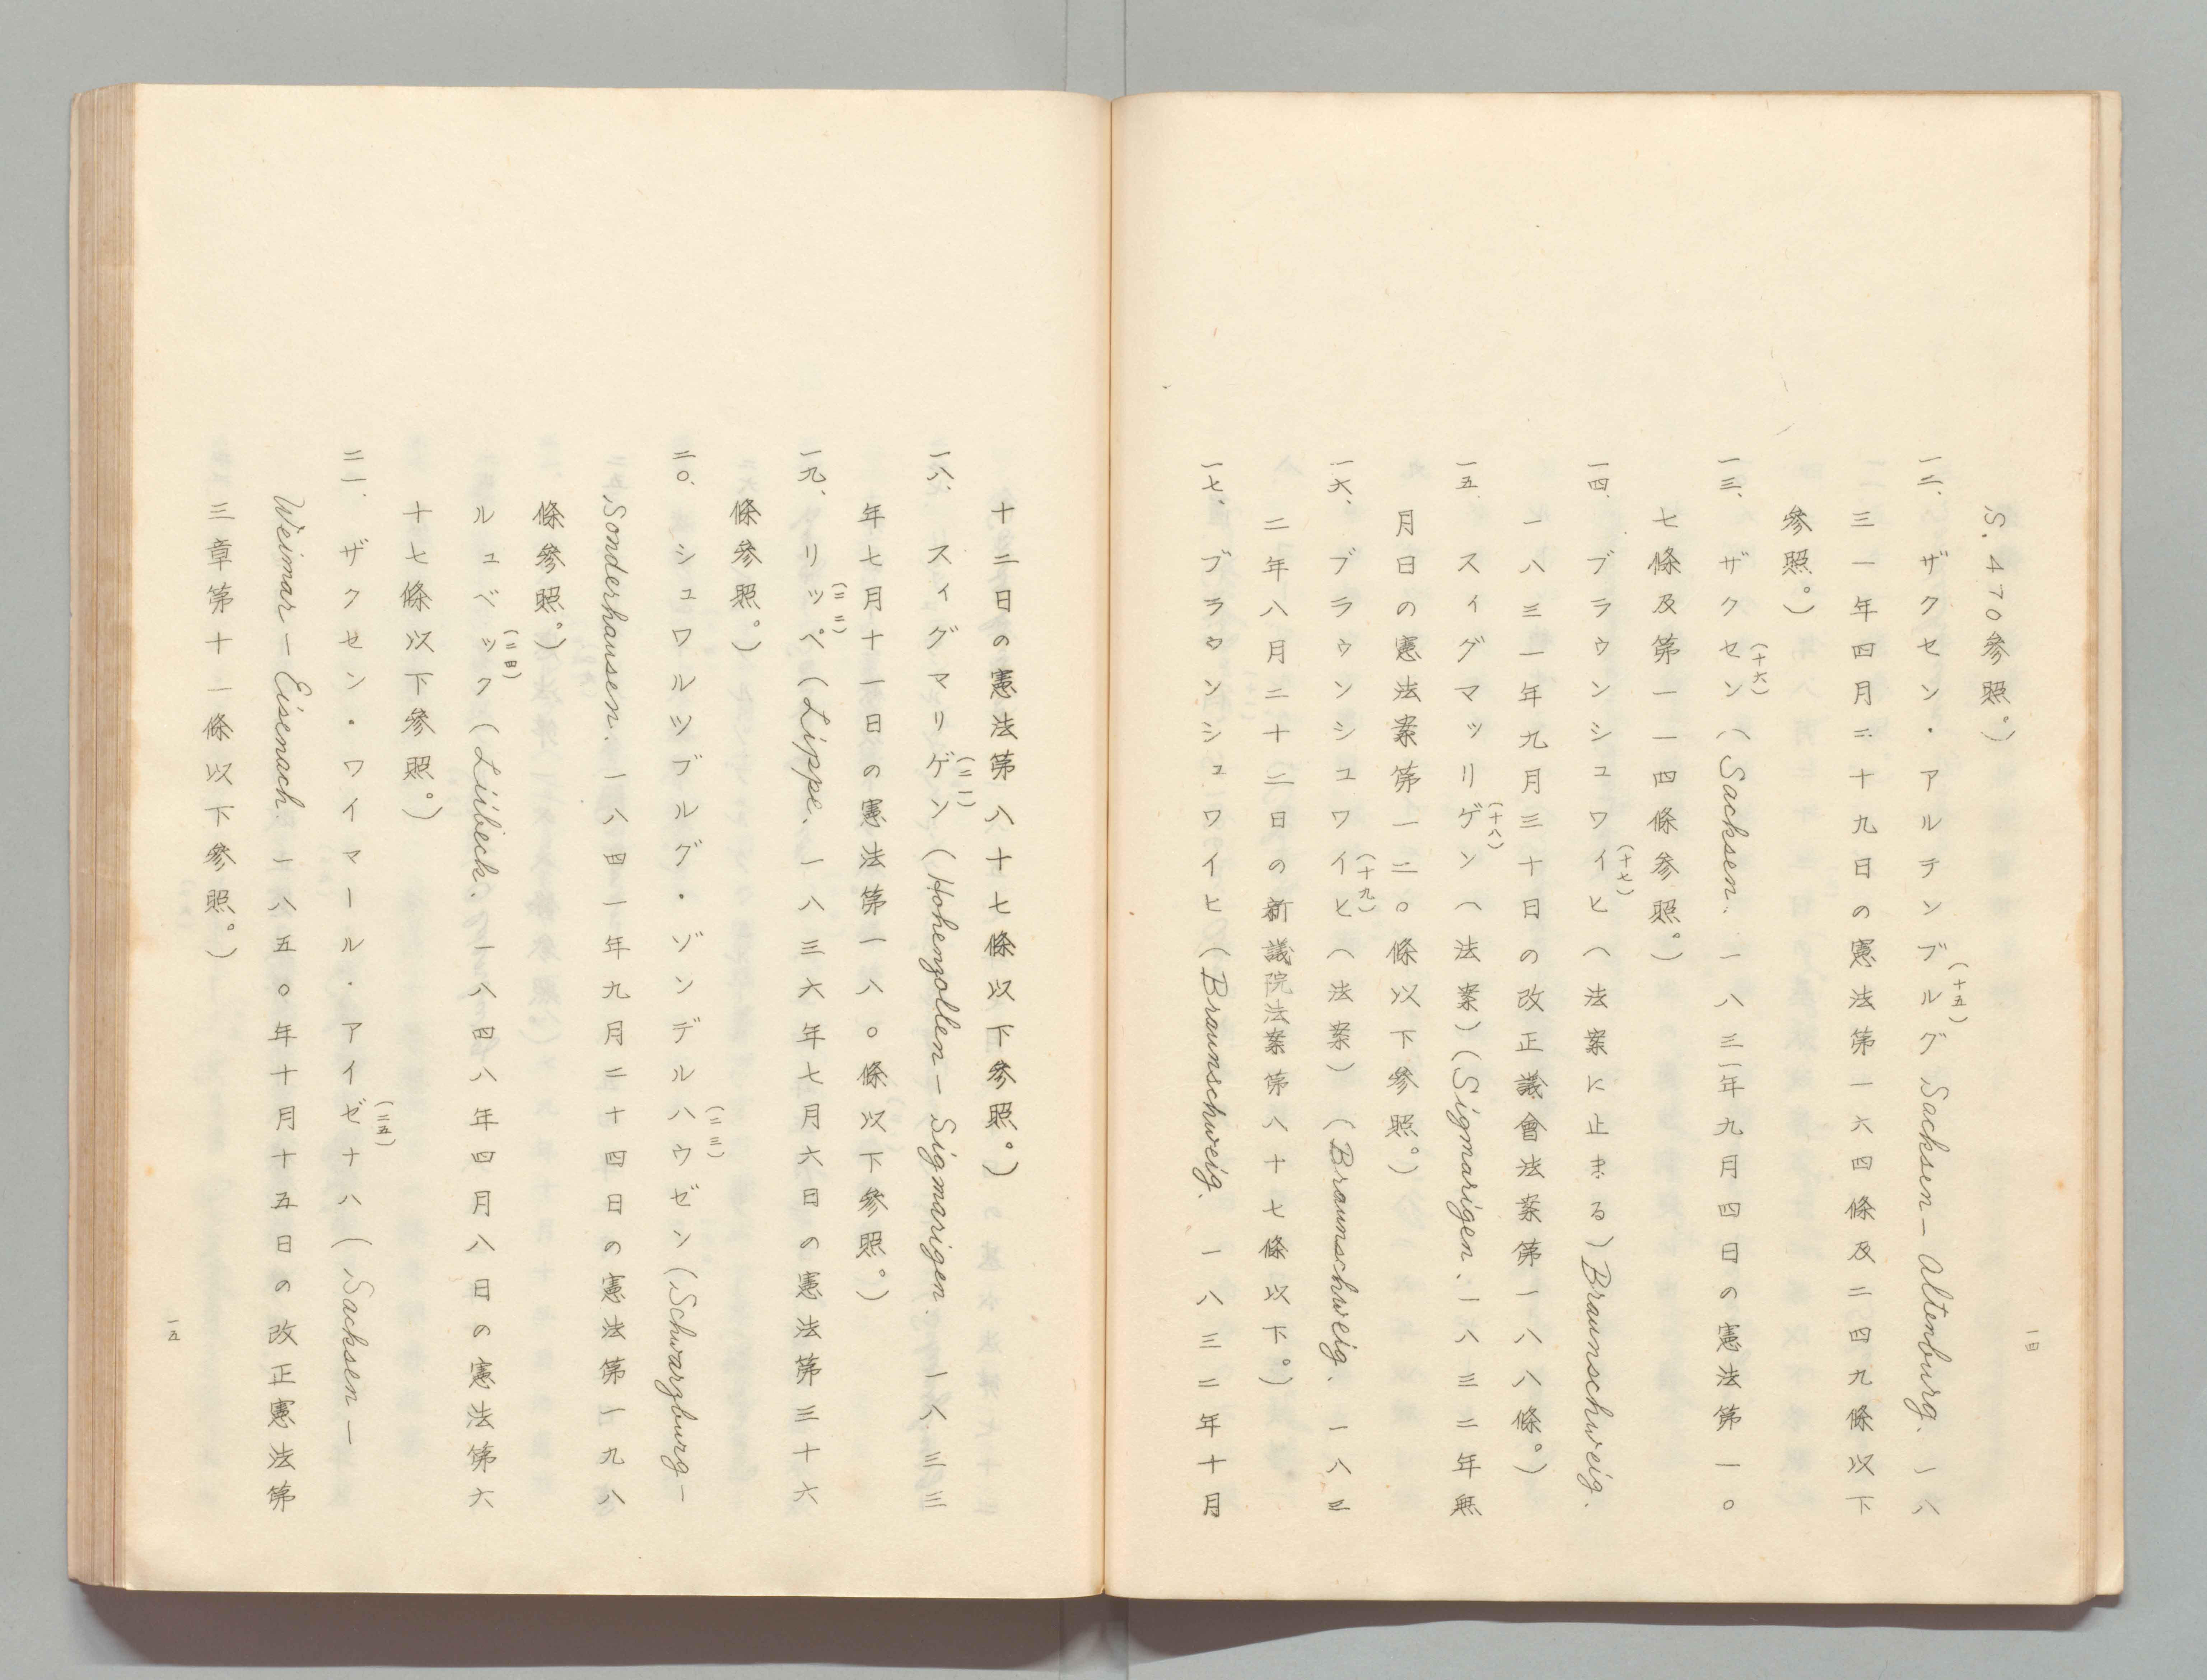 S. 470參照。)
一二、ザクセン・アルテンブルグ(十五) Sachsen—Altenburg. 一八
三一年四月二十九日の憲法第一六四條及二四九條以下
參照。)
一三、ザクセン(十六)(Sachsen. 一八三一年九月四日の憲法第一〇
七條及第一一四條參照。)
一四、ブラウンシュワイヒ(十七)(法案に止まる)Braunschweig.
一八三一年九月三十日の改正議會法案第一八八條。)
一五、スィグマッリゲン(十八)(法案)(Sigmarigen、一八三二年無
月日の憲法案第一二〇條以下參照。)
一六、ブラウンシュワイヒ(十九)(法案)(Braunschweig. 一八三
二年八月二十二日の新議院法案第八十七條以下。)
一七、ブラウンシュワイヒ(Braunschweig. 一八三二年十月
一四
十二日の憲法第八十七條以下參照。)
一八、スィグマリゲン(二一)(Hohenzollen—Sigmarigen. 一八三三
年七月十一日の憲法第一八〇條以下參照。)
一九、リッペ(二二)(Lippe. 一八三六年七月六日の憲法第三十六
條參照。)
二〇、シュワルツブルグ・ゾンデルハウゼン(二三)(Schwarzburg—
Sonderhausen. 一八四一年九月二十四日の憲法第一九八
條參照。)
ルュベック(二四)(Lübeck. 一八四八年四月八日の憲法第六
十七條以下參照。)
二一、ザクセン・ワイマール・アイゼナハ(二五)(Sachsen—
Weimar—Eisenach. 一八五〇年十月十五日の改正憲法第
三章第十一條以下參照。)
一五